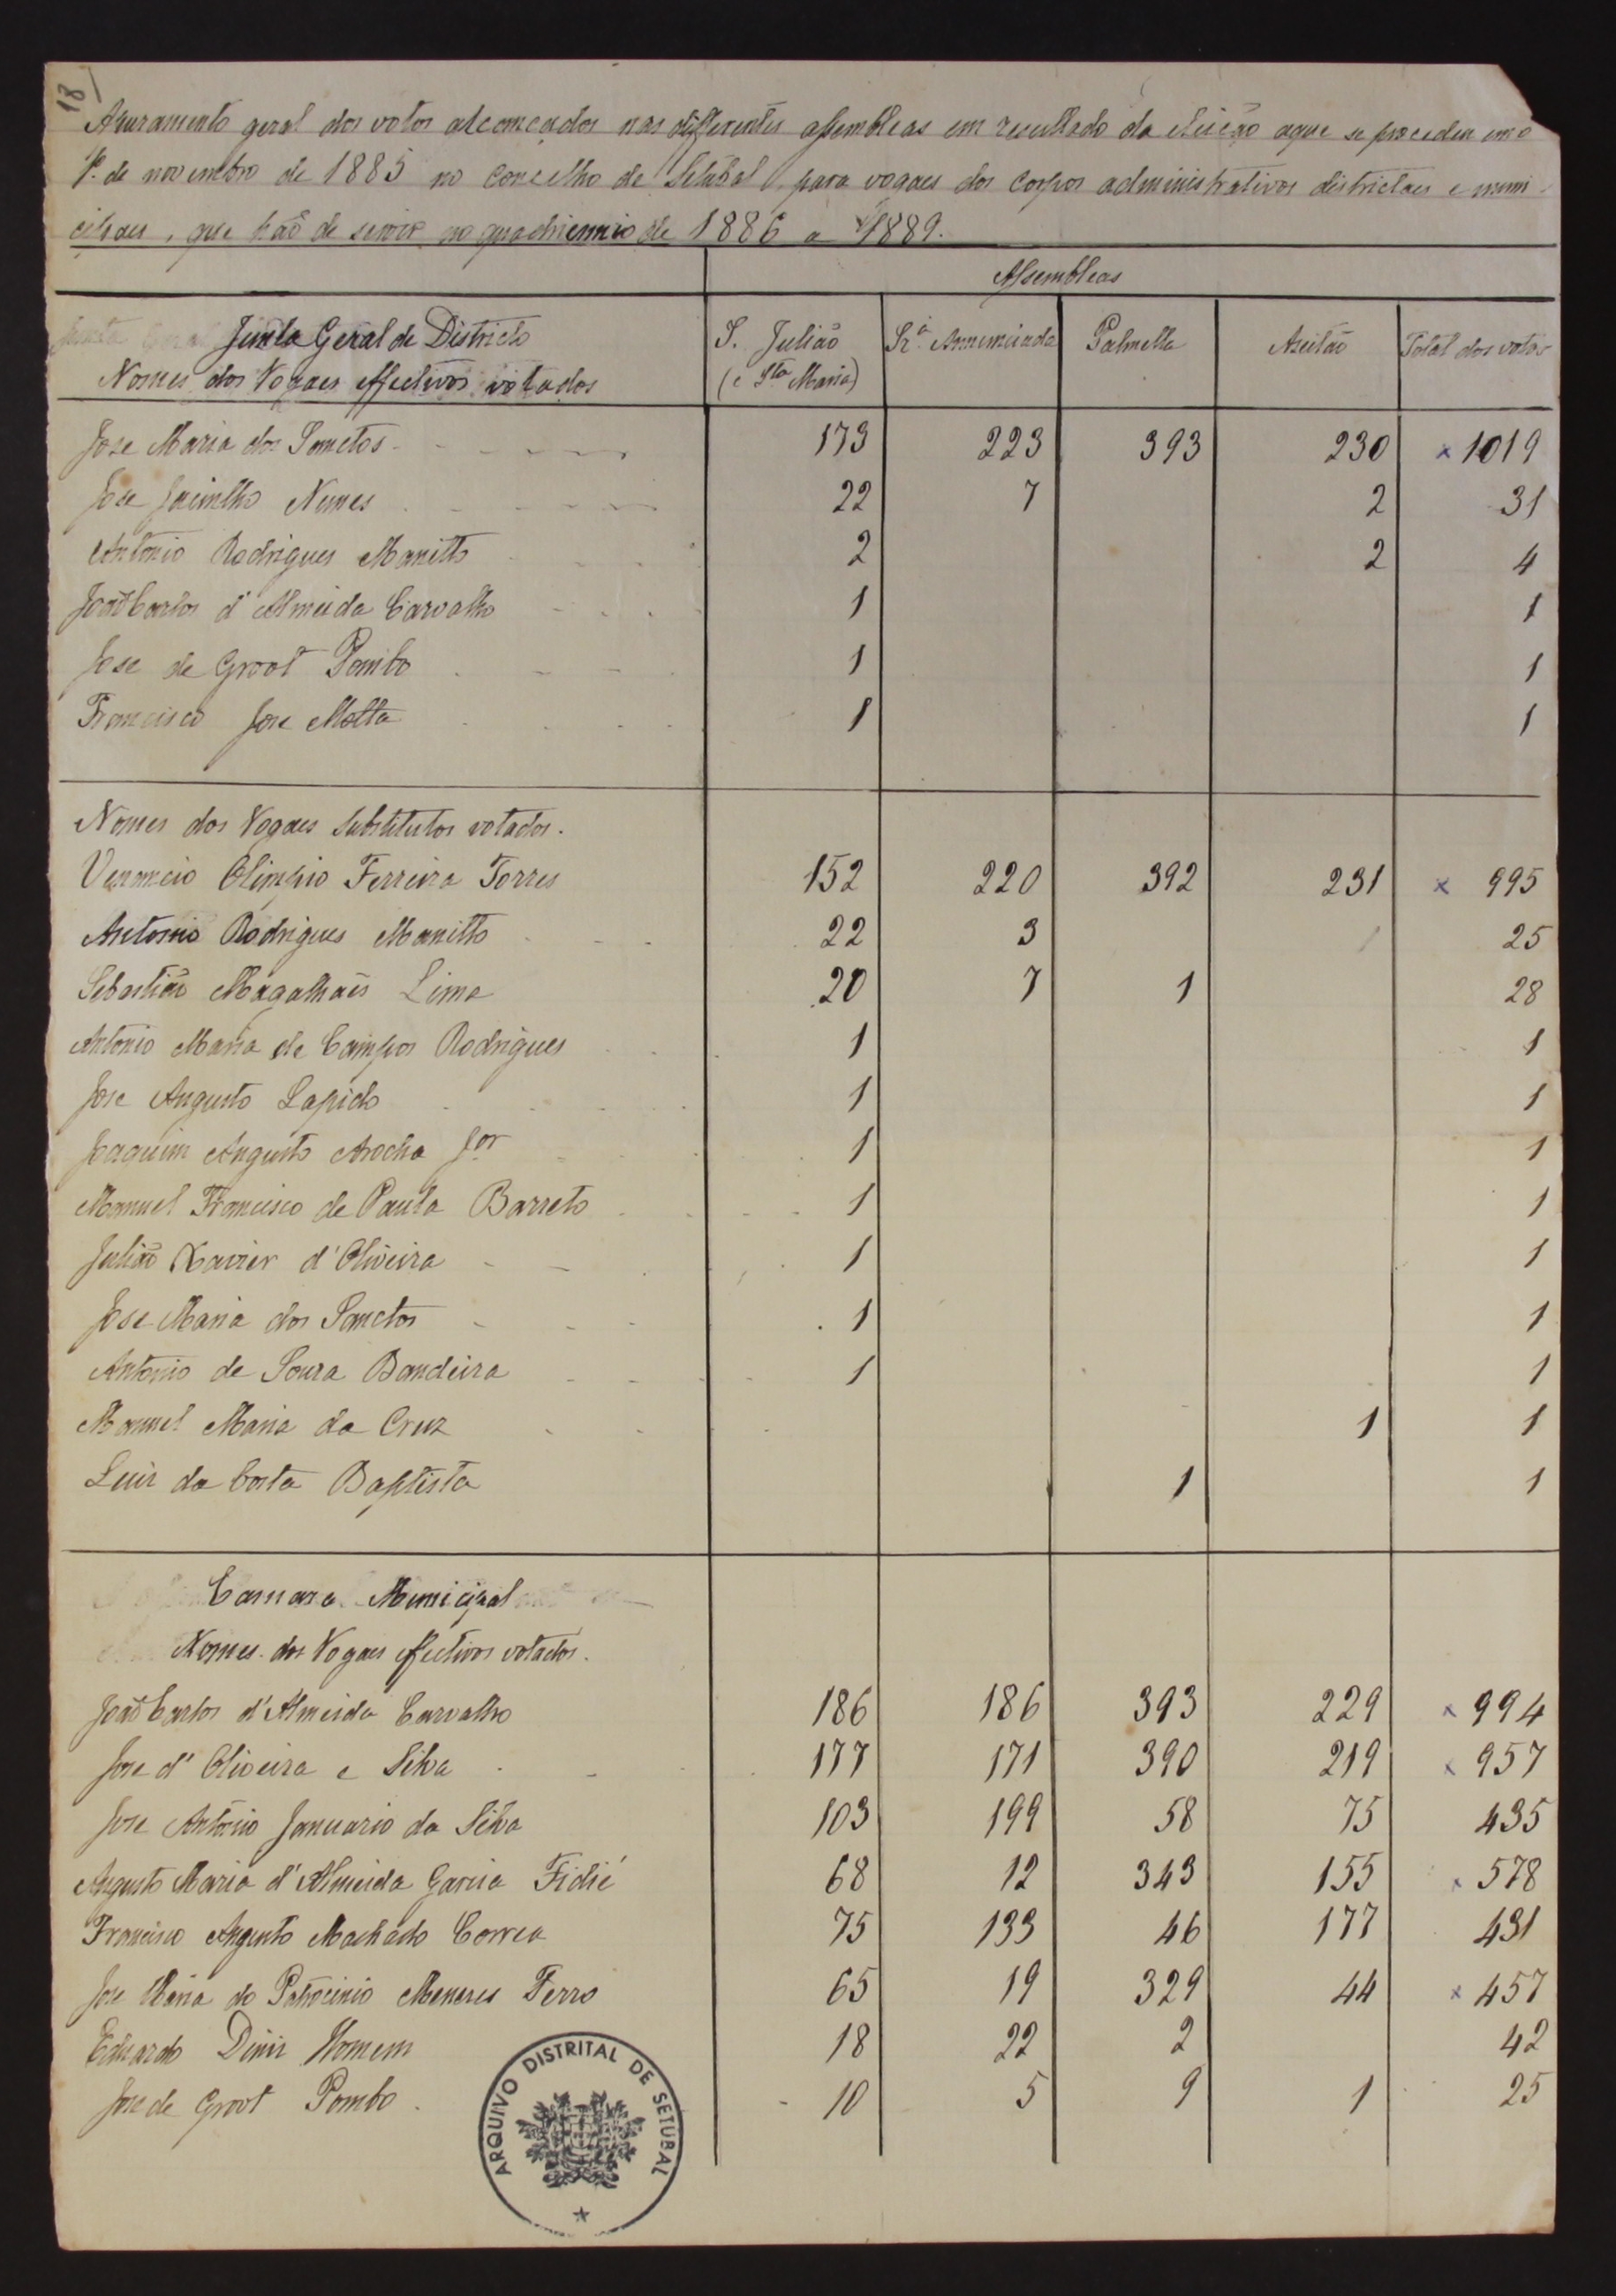 18)
Apuramento geral dos votos alcançados nas differentes assembleas em resultado da eleição aque se procedeu em o
1º de novembro de 1885 no concelho de Setubal, para vogaes dos corpos administrativos districtaes e muni-
cipaes, que hão de servir no quadriennio de 1886 a 1889.
Assembleas
Junta Geral de Districto
Nomes dos Vogaes effectivos votados
S. Julião (e Sta Maria) Srª Annunciada Palmella Azeitão Total dos votos
Jose Maria dos Sanctos 173 223 393 230 x 1019
Jose Jacintho Nunes 22 7 2 31
Antonio Rodrigues Manitto 2 2 4
João Carlos d'Almeida Carvalho 1 1
Jose de Groot Pombo 1 1
Francisco Jose Motta 1 1
Nomes dos Vogaes substitutos votados.
Venancio Olimpio Ferreira Torres 152 220 392 231 x 995
Antonio Rodrigues Manitto 22 3 25
Sebastião Magalhães Lima 20 7 1 28
Antonio Maria de Campos Rodrigues 1 1
Jose Augusto Lapido 1 1
Joaquim Augusto Arocha Jor 1 1
Manuel Francisco de Paula Barreto 1 1
Julião Xavier d'Oliveira 1 1
Jose Maria dos Sanctos 1 1
Antonio de Souza Bandeira 1 1
Manuel Maria da Cruz 1 1
Luiz da Costa Baptista 1 1
Camara Municipal
Nomes dos Vogaes effectivos votados.
João Carlos d'Almeida Carvalho 186 186 393 229 x 994
Jose d'Oliveira e Silva 177 171 390 219 x 957
Jose Antonio Januario da Silva 103 199 58 75 435
Augusto Maria d'Almeida Garcia Fidié 68 12 343 155 x 578
Francisco Augusto Machado Correa 75 133 46 177 431
Jose Maria do Patrocinio Menezes Ferro 65 19 329 44 x 457
Eduardo Diniz Homem 18 22 2 42
Jose de Groot Pombo 10 5 9 1 25
ARQUIVO DISTRITAL DE SETUBAL